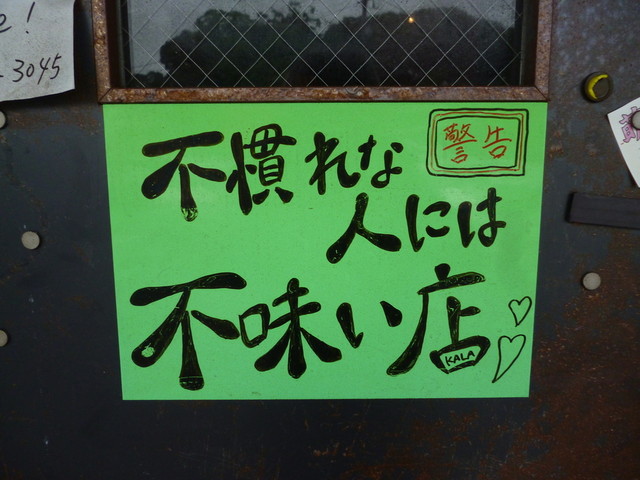 e!
-3045
警告
不慣れな
人には
不味い店
KALA